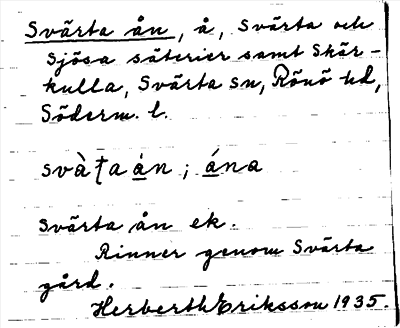 Svärta ån, å, Svärta och
Sjösa säterier samt Skär-
kulla, Svärta sn, Rönö hd,
Söderm. l.
svàʈa án ; ána
Svärta ån ek.
Rinner genom Svärta
gård.
Herberth Eriksson 1935.